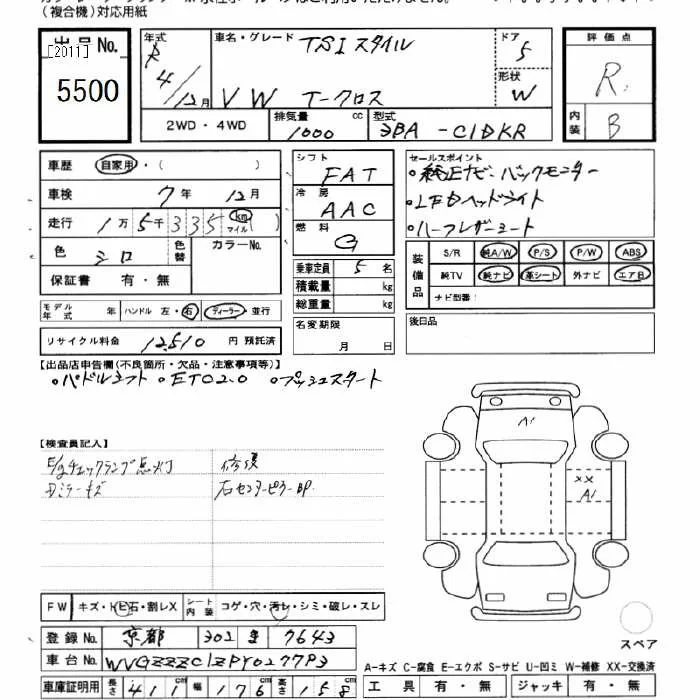 （複合機）対応用紙
出品No.
[2011]
5500
年式
R
4/12月
車名・グレード
TSI スタイル
VW T-クロス
ドア
5
形状
W
2WD・4WD
排気量
1000
cc
型式
3BA-C1DKR
評価点
R
内装
B
車歴 自家用・（ ）
車検 7年 12月
走行 1万5千335 km マイル
色 シロ 色替 カラーNo.
保証書 有・無
シフト
FAT
冷房
AAC
燃料
G
乗車定員 5名
積載量 kg
総重量 kg
名変期限
月 日
セールスポイント
・純正ナビ バックモニター
・LEDヘッドライト
・ハーフレザーシート
装備品
S/R 純A/W P/S P/W ABS
純TV 純ナビ 革シート 外ナビ エアB
ナビ型番：
後日品
モデル年式 年 ハンドル 左・右 ディーラー・並行
リサイクル料金 12510 円 預託済
【出品店申告欄(不良箇所・欠品・注意事項等)】
・パドルシフト ・ETC2.0 ・プッシュスタート
【検査員記入】
E/gチェックランプ点灯
修復
ミラーキズ
右センターピラーBP
A1
XX
A1
FW キズ・トビ石・割レX シート内装 コゲ・穴・汚レ・シミ・破レ・スレ
スペア
登録No. 京都 302 7643
車台No. WVGZZZC1ZPY027793
車庫証明用 長さ 411cm 幅 176cm 高さ 158cm
A-キズ C-腐食 E-エクボ S-サビ U-凹ミ W-補修 XX-交換済
工具 有・無 ジャッキ 有・無